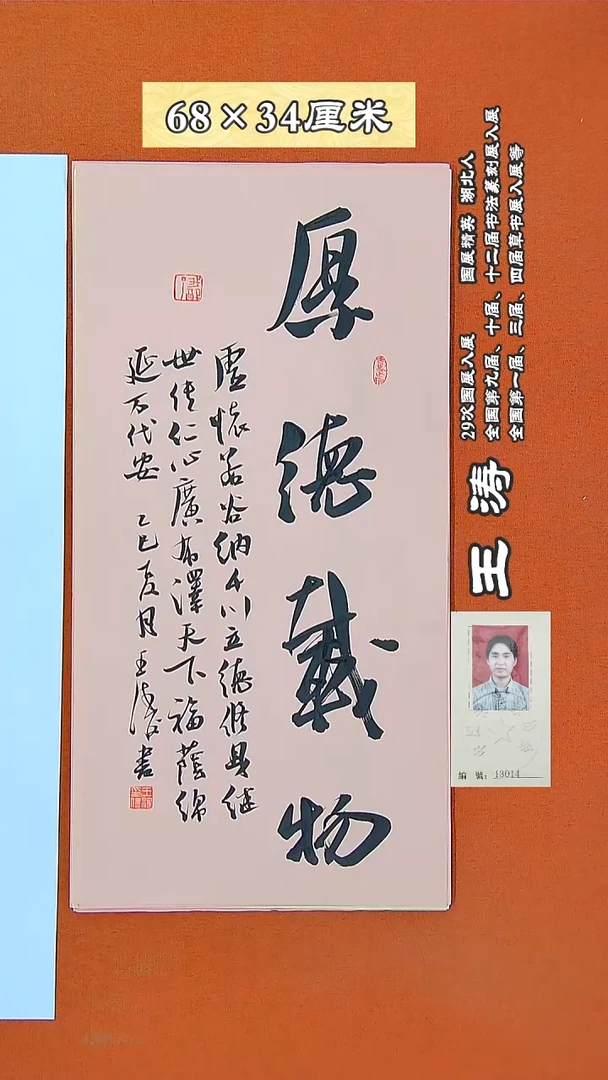 68×34厘米
厚德載物
虚懷若谷納千川立德修身继
世传仁心廣布澤天下福蔭绵
延万代安 乙巳夏月王涛书
王涛
29次国展入展 国展精英 湖北人
全国第九届、十届、十二届书法篆刻展入展
全国第一届、三届、四届草书展入展等
編號：13014